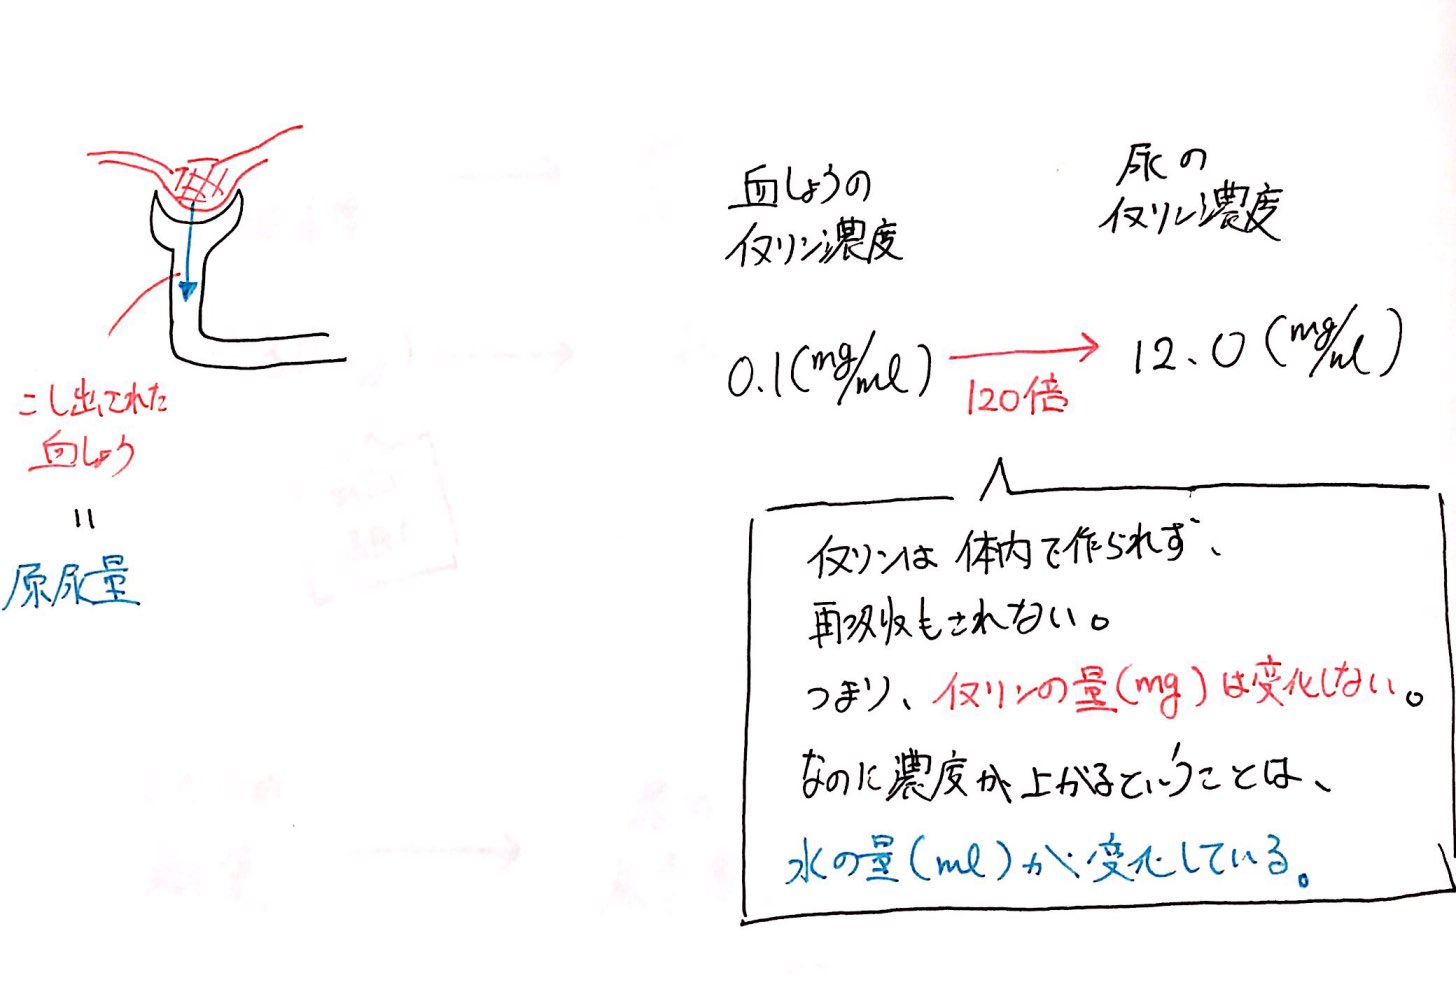 血しょうの
イヌリン濃度
尿の
イヌリン濃度
0.1(mg/ml)
120倍
12.0(mg/ml)
こし出された
血しょう
=
原尿量
イヌリンは体内で作られず、
再吸収もされない。
つまり、イヌリンの量(mg)は変化しない。
なのに濃度が上がるということは、
水の量(ml)が変化している。